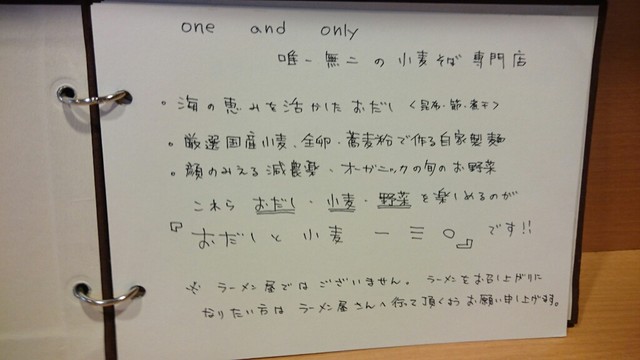 one and only
唯一無二の小麦そば専門店
。海の恵みを活かしたおだし〈昆布・節・煮干〉
。厳選国産小麦、全卵・蕎麦粉で作る自家製麺
。顔のみえる減農薬・オーガニックの旬のお野菜
これら おだし・小麦・野菜 を楽しめるのが
『おだしと小麦 一三〇』です!!
※ ラーメン屋ではございません。ラーメンをお召し上がりに
なりたい方は ラーメン屋さんへ行って頂くよう お願い申し上げます。